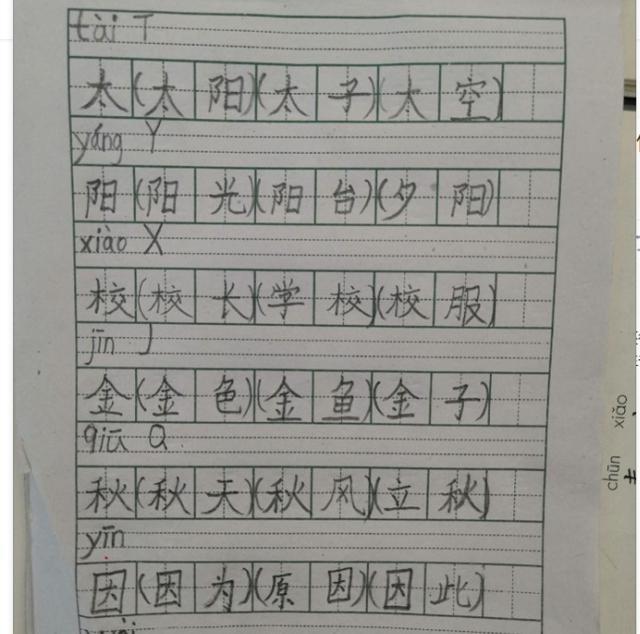 tài T
太(太阳)(太子)(太空)
yáng Y
阳(阳光)(阳台)(夕阳)
xiào X
校(校长)(学校)(校服)
jīn J
金(金色)(金鱼)(金子)
qiū Q
秋(秋天)(秋风)(立秋)
yīn
因(因为)(原因)(因此)
chūn xiǎo